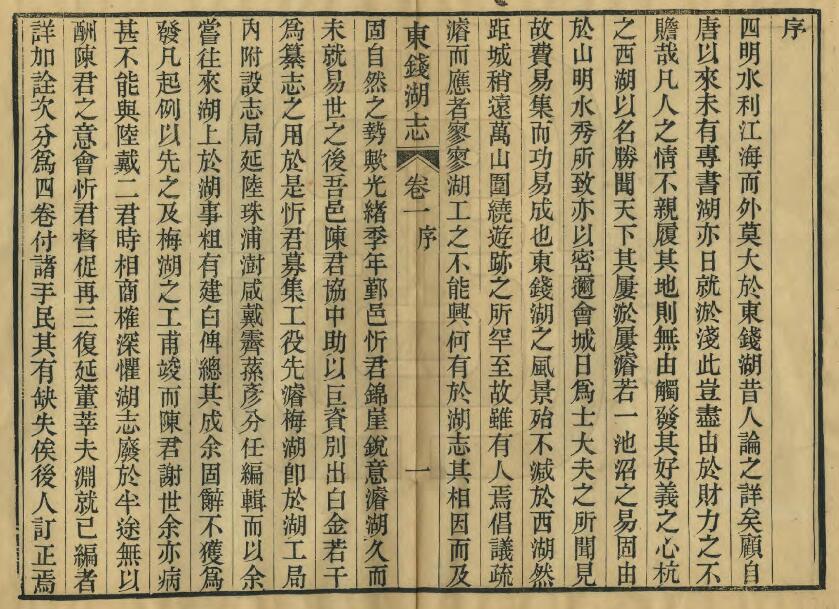 序
四明水利江海而外莫大於東錢湖昔人論之詳矣顧自
唐以來未有專書湖亦日就淤淺此豈盡由於財力之不
贍哉凡人之情不親履其地則無由觸發其好義之心杭
之西湖以名勝聞天下其屢淤屢濬若一池沼之易固由
於山明水秀所致亦以密邇會城日爲士大夫之所聞見
故費易集而功易成也東錢湖之風景殆不減於西湖然
距城稍遠萬山圍繞遊跡之所罕至故雖有人焉倡議疏
濬而應者寥寥湖工之不能興何有於湖志其相因而及
東錢湖志 卷一 序 一
固自然之勢歟光緒季年鄞邑忻君錦崖銳意濬湖久而
未就易世之後吾邑陳君協中助以巨資別出白金若干
爲纂志之用於是忻君募集工役先濬梅湖卽於湖工局
內附設志局延陸珠浦澍咸戴霽蓀彥分任編輯而以余
嘗往來湖上於湖事粗有建白俾總其成余固辭不獲爲
發凡起例以先之及梅湖之工甫竣而陳君謝世余亦病
甚不能與陸戴二君時相商榷深懼湖志廢於半途無以
酬陳君之意會忻君督促再三復延董莘夫淵就已編者
詳加詮次分爲四卷付諸手民其有缺失俟後人訂正焉